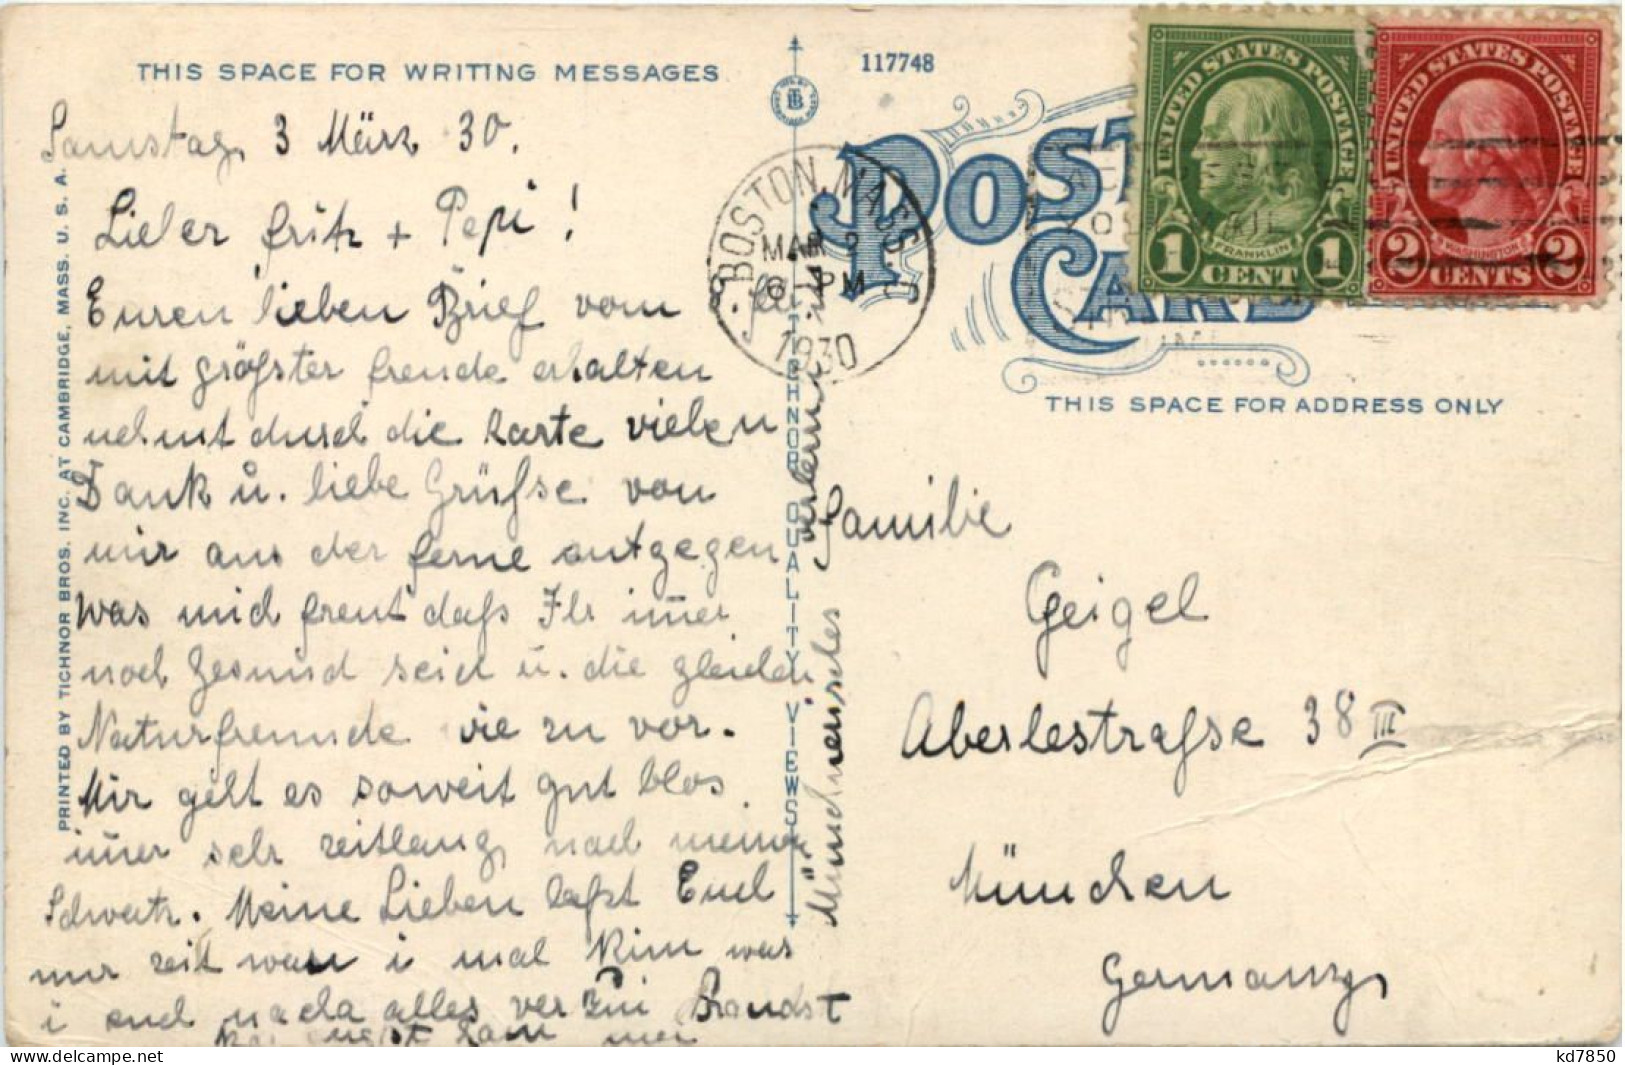 THIS SPACE FOR WRITING MESSAGES
117748
POST CARD
UNITED STATES POSTAGE
FRANKLIN
1 CENT 1
UNITED STATES POSTAGE
WASHINGTON
2 CENTS 2
BOSTON, MASS.
MAR 2
6 PM
1930
THIS SPACE FOR ADDRESS ONLY
PRINTED BY TICHNOR BROS. INC. AT CAMBRIDGE, MASS. U. S. A.
TICHNOR QUALITY VIEWS
Samstag, 3 März 30.
Lieber Fritz + Pepi!
Euren lieben Brief vom
mit größter freude erhalten
nehmt durch die Karte vielen
Dank u. liebe Grüße von
mir aus der ferne entgegen
was mich freut daß Ihr im̄er
noch Gesund seid u. die gleichen
Naturfreunde wie zu vor.
Mir geht es soweit gut blos
im̄er sehr zeitlang nach meine
Schwartz. Meine Lieben laßt Euch
nur zeit wan i mal kim was
i eich nacha alles verzui Brandst
Münchnerisches
Familie
Geigel
Aberlestraße 38 III
München
Germany
kd7850
https://www.delcampe.net